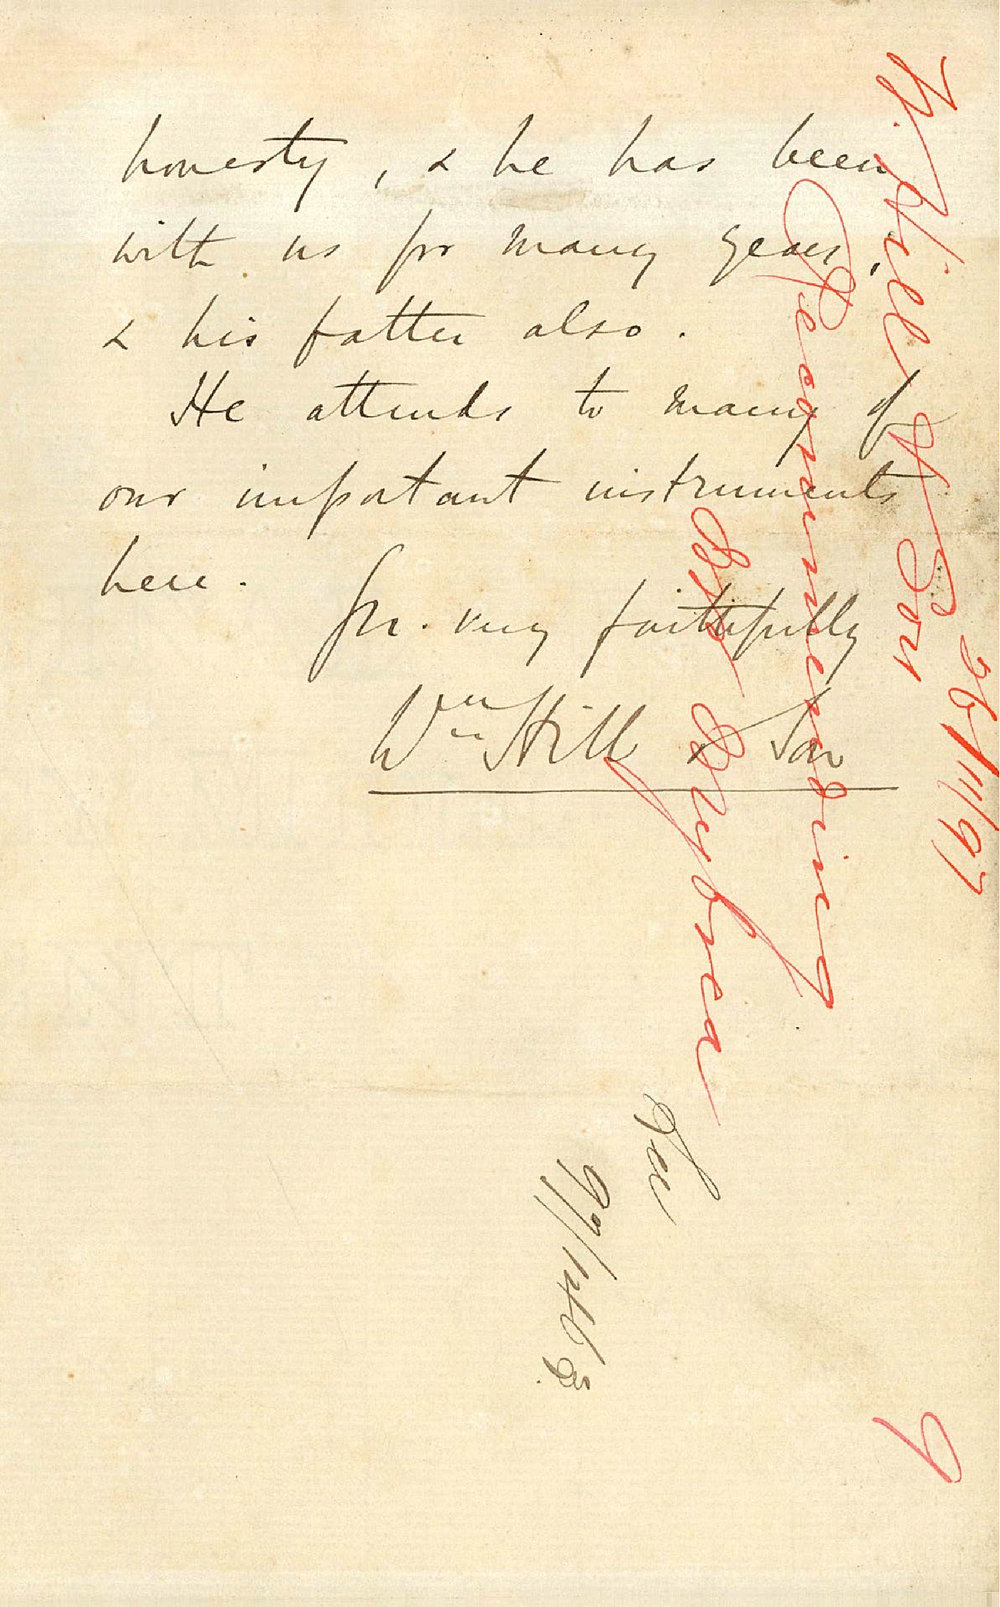 honesty, & he has been
with us for many years,
& his father also.
He attends to many of
our important instruments
here.
Yrs. very faithfully
Wm Hill & Son
W. Hill & Son
26/11/97
Recommending
See
97/1416
9